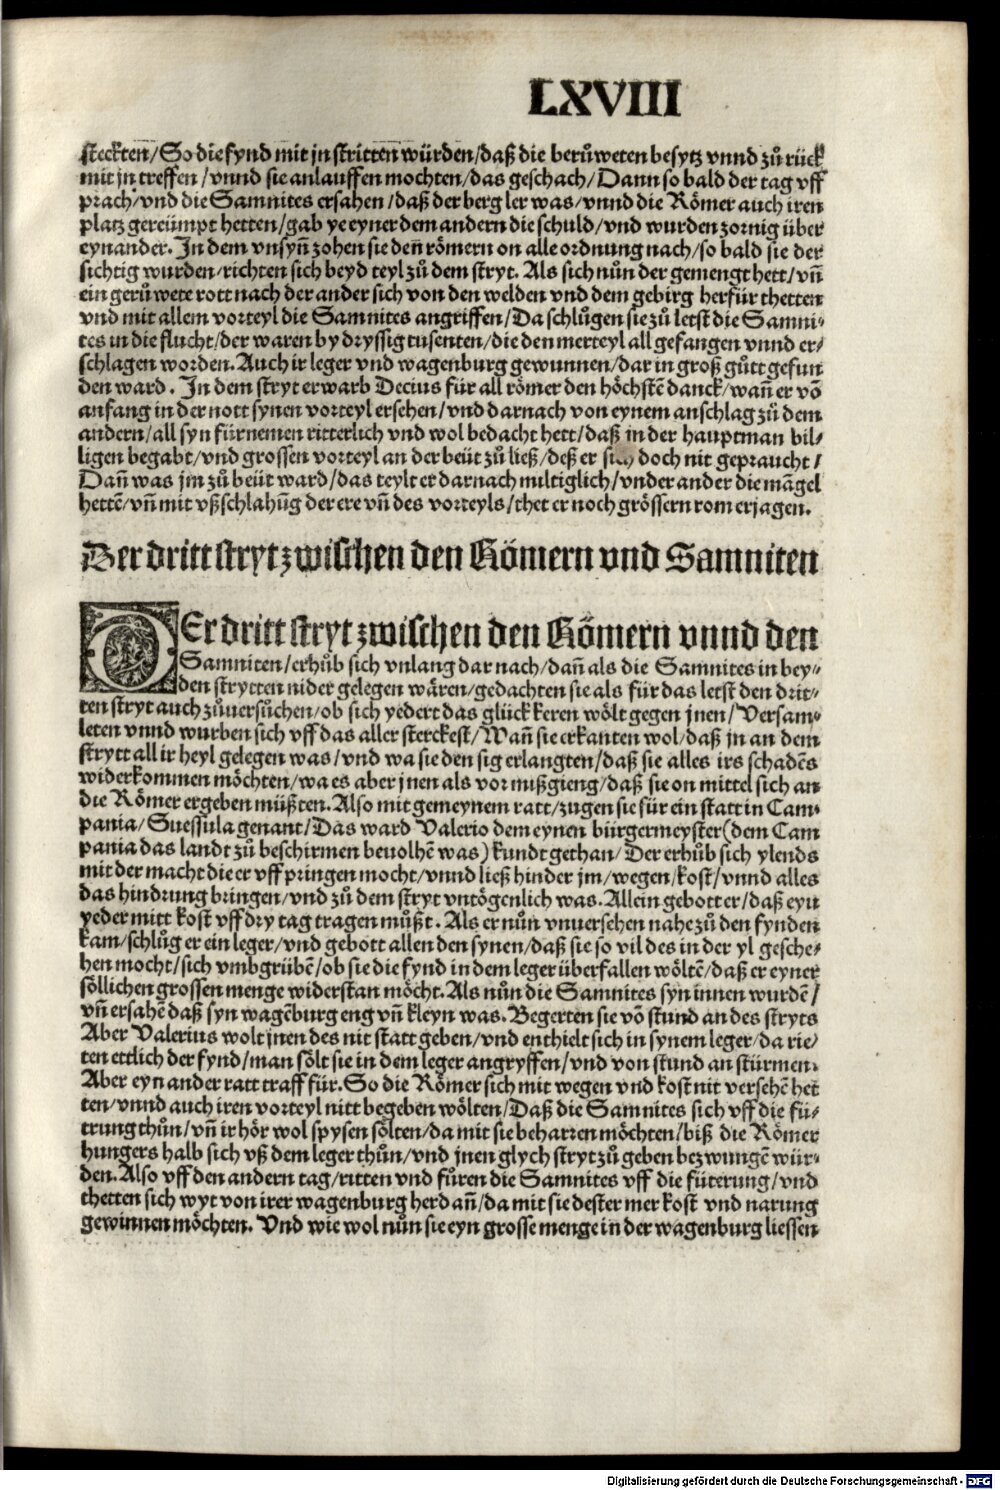 LXVIII
steckten/So die fynd mit jn stritten würden/daß die berůweten besytz vnnd zů rück
mit jn treffen/vnnd sie anlauffen mochten/das geschach/Dann so bald der tag vff
prach/vnd die Samnites ersahen/daß der berg ler was/vnnd die Römer auch iren
platz gereümpt hetten/gab ye eyner dem andern die schuld/vnd wurden zornig über
eynander. In dem vnsyn̄ zohen sie den̄ römern on alle ordnung nach/so bald sie der
sichtig wurden/richten sich beyd teyl zů dem stryt. Als sich nůn der gemengt hett/vn̄
ein gerůwete rott nach der ander sich von den welden vnd dem gebirg herfür thetten
vnd mit allem vorteyl die Samnites angriffen/Da schlůgen sie zů letst die Samni⸗
tes in die flucht/der waren by dryssig tusenten/die den merteyl all gefangen vnnd er⸗
schlagen worden. Auch ir leger vnd wagenburg gewunnen/dar in groß gůtt gefun
den ward. In dem stryt erwarb Decius für all römer den höchstē danck/wan̄ er vō
anfang in der nott synen vorteyl ersehen/vnd darnach von eynem anschlag zů dem
andern/all syn fürnemen ritterlich vnd wol bedacht hett/daß in der hauptman bil⸗
ligen begabt/vnd grossen vorteyl an der beüt zů ließ/deß er sich doch nit gepraucht/
Dan̄ was jm zů beüt ward/das teylt er darnach miltiglich/vnder ander die māgel
hettē/vn̄ mit vßschlahūg der ere vn̄ des vorteyls/thet er noch grössern rom erjagen.
Der dritt stryt zwischen den Römern vnd Samniten
DEr dritt stryt zwischen den Römern vnnd den
Samniten/erhůb sich vnlang dar nach/dan̄ als die Samnites in bey⸗
den strytten nider gelegen wären/gedachten sie als für das letst den drit⸗
ten stryt auch zůuersůchen/ob sich yedert das glück keren wölt gegen jnen/Versam⸗
leten vnnd wurben sich vff das aller sterckest/Wan̄ sie erkanten wol/daß jn an dem
strytt all ir heyl gelegen was/vnd wa sie den sig erlangten/daß sie alles irs schadēs
widerkommen möchten/wa es aber jnen als vor mißgieng/daß sie on mittel sich an
die Römer ergeben müßten. Also mit gemeynem ratt/zugen sie für ein statt in Cam⸗
pania/Suessula genant/Das ward Valerio dem eynen bürgermeyster(dem Cam
pania das landt zů beschirmen beuolhē was) kundt gethan/Der erhůb sich ylends
mit der macht die er vff pringen mocht/vnnd ließ hinder jm/wegen/kost/vnnd alles
das hindrung bringen/vnd zů dem stryt vntögenlich was. Allein gebott er/daß eyn
yeder mitt kost vff dry tag tragen müßt. Als er nůn vnuersehen nahe zů den fynden
kam/schlůg er ein leger/vnd gebott allen den synen/daß sie so vil des in der yl gesche⸗
hen mocht/sich vmbgrübē/ob sie die fynd in dem leger überfallen wöltē/daß er eyner
söllichen grossen menge widerstan möcht. Als nůn die Samnites syn innen wurdē/
vn̄ ersahē daß syn wagēburg eng vn̄ kleyn was. Begerten sie vō stund an des stryts
Aber Valerius wolt jnen des nit statt geben/vnd enthielt sich in synem leger/da rie⸗
ten ettlich der fynd/man sölt sie in dem leger angryffen/vnd von stund an stürmen.
Aber eyn ander ratt traff für. So die Römer sich mit wegen vnd kost nit versehē het
ten/vnnd auch iren vorteyl nitt begeben wölten/Daß die Samnites sich vff die fü⸗
trung thůn/vn̄ ir hör wol spysen sölten/da mit sie beharren möchten/biß die Römer
hungers halb sich vß dem leger thůn/vnd jnen glych stryt zů geben bezwungē wür⸗
den. Also vff den andern tag/ritten vnd fůren die Samnites vff die füterung/vnd
thetten sich wyt von irer wagenburg herdan̄/da mit sie dester mer kost vnd narung
gewinnen möchten. Vnd wie wol nůn sie eyn grosse menge in der wagenburg liessen
Digitalisierung gefördert durch die Deutsche Forschungsgemeinschaft - DFG